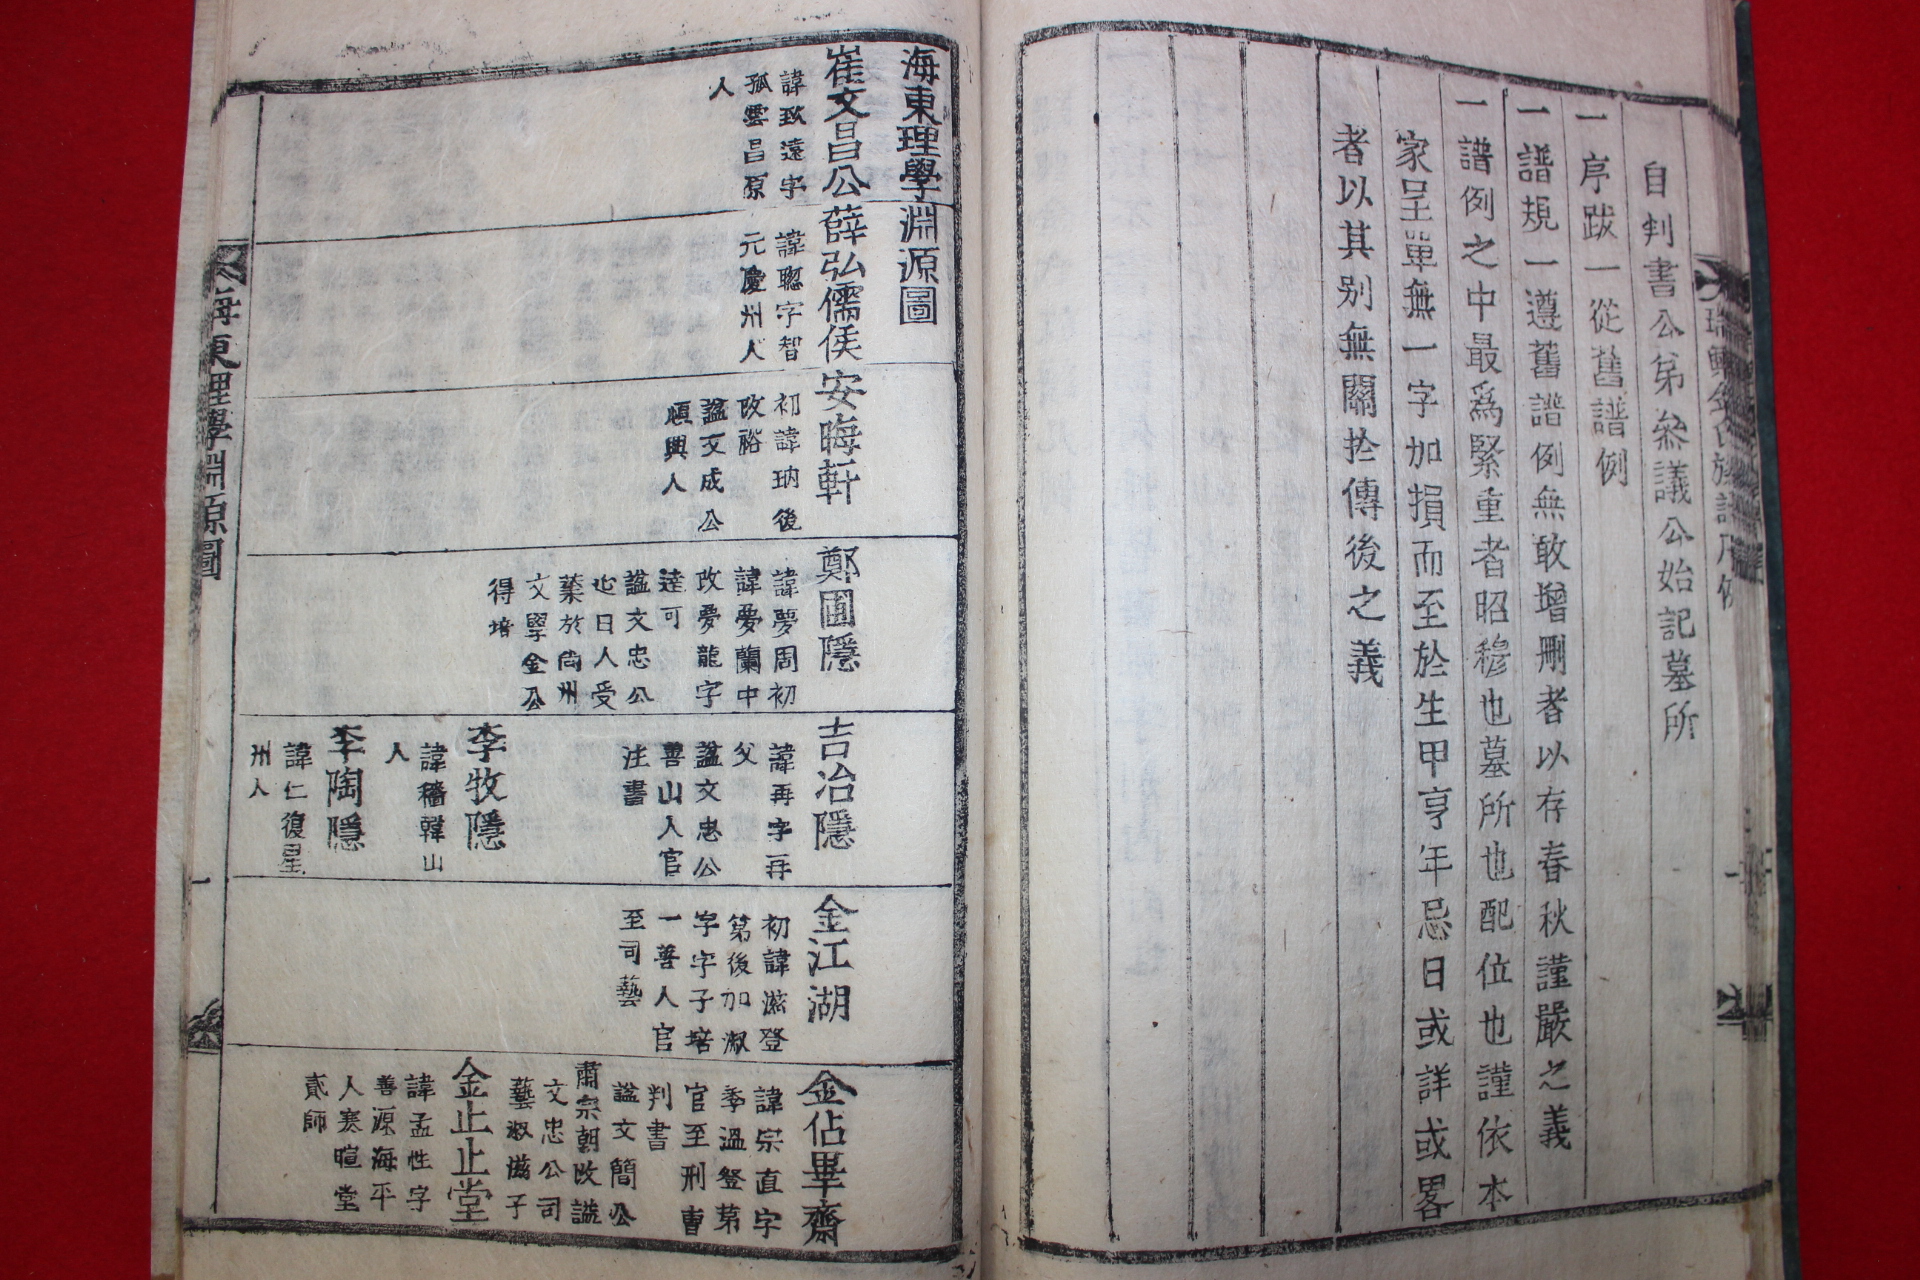 自判書公第叅議公始記墓所
一序跋一從舊譜例
一譜規一遵舊譜例無敢增刪者以存春秋謹嚴之義
一譜例之中最爲緊重者昭穆也墓所也配位也謹依本
家呈單無一字加損而至於生甲享年忌日或詳或畧
者以其别無關於傳後之義
海東理學淵源圖
崔文昌公
諱致遠字
孤雲昌原
人
薛弘儒侯
諱聰字智
元慶州人
安晦軒
初諱珦後
改裕
諡文成公
順興人
鄭圃隱
諱夢周初
諱夢蘭中
改夢龍字
達可
諡文忠公
迎日人受
業於尙州
文學金公
得培
吉冶隱
諱再字再
父
諡文忠公
善山人官
注書
李牧隱
諱穡韓山
人
李陶隱
諱仁復星
州人
金江湖
初諱滋登
第後加淑
字字子培
一善人官
至司藝
金佔畢齋
諱宗直字
季溫登第
官至刑曹
判書
諡文簡公
肅宗朝改諡
文忠公司
藝叔滋子
金止止堂
諱孟性字
善源海平
人寒暄堂
貳師
海東理學淵源圖
一